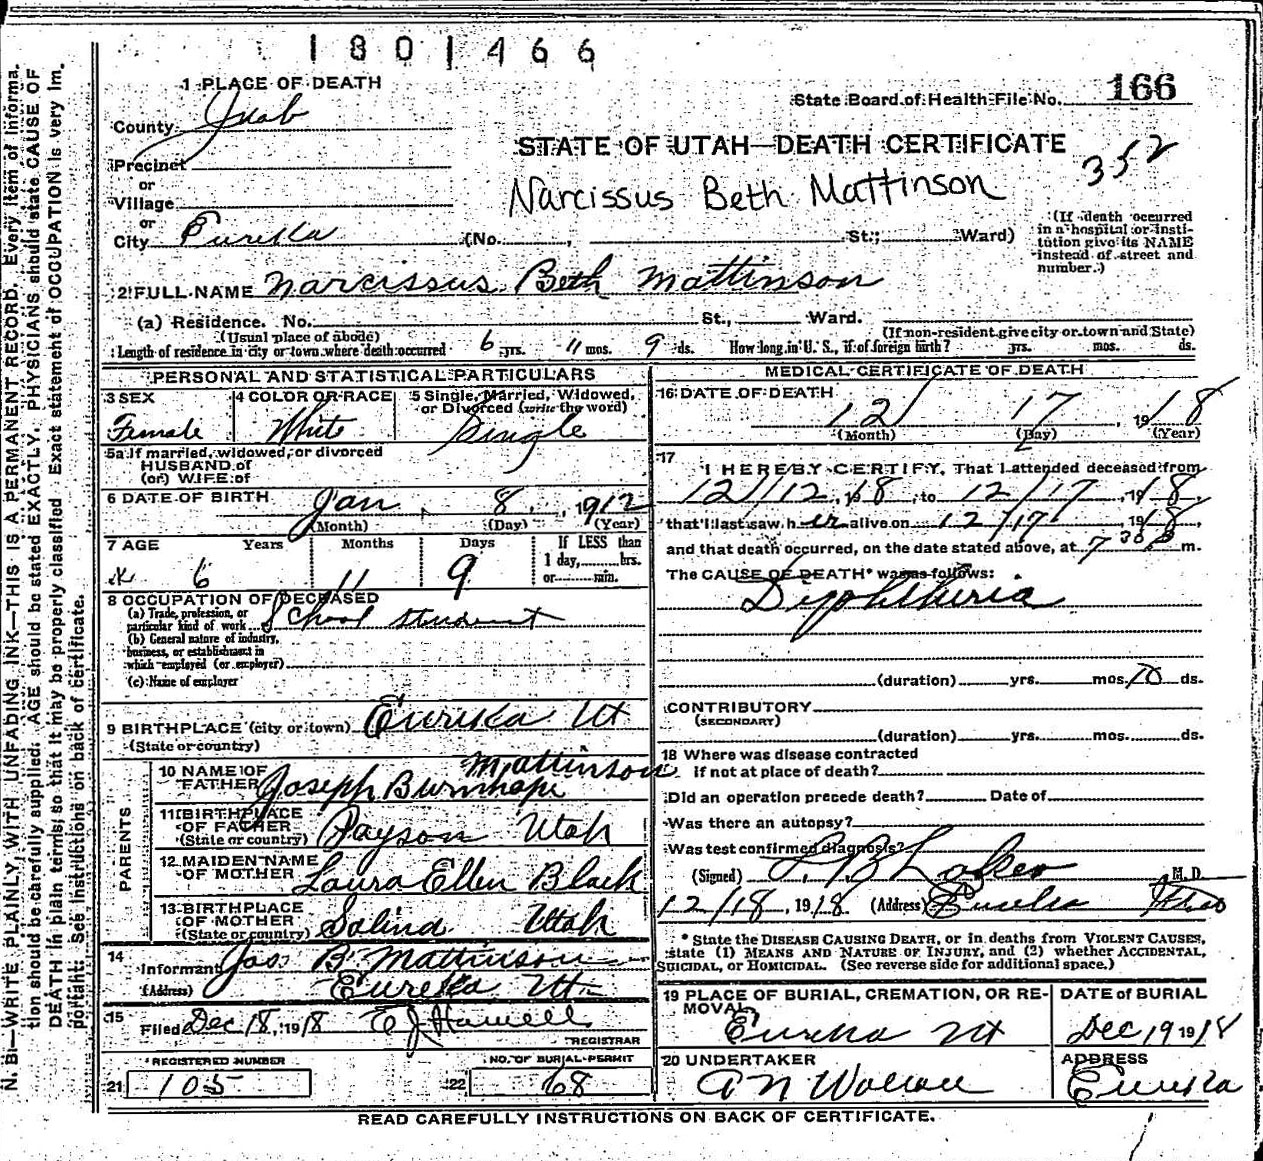 1801466
1 PLACE OF DEATH
State Board of Health File No. 166
County Juab
STATE OF UTAH—DEATH CERTIFICATE
352
Precinct
or
Village
Narcissus Beth Mattinson
or
City Eureka (No. , St.; Ward)
(If death occurred in a hospital or institution give its NAME instead of street and number.)
2 FULL NAME Narcissus Beth Mattinson
(a) Residence. No. St., Ward.
(Usual place of abode) (If non-resident give city or town and State)
Length of residence in city or town where death occurred 6 yrs. 11 mos. 9 ds. How long in U. S., if of foreign birth? yrs. mos. ds.
PERSONAL AND STATISTICAL PARTICULARS
3 SEX 4 COLOR OR RACE 5 Single, Married, Widowed, or Divorced (write the word)
Female White Single
5a If married, widowed, or divorced
HUSBAND of
(or) WIFE of
6 DATE OF BIRTH Jan. 8, 1912
(Month) (Day) (Year)
7 AGE Years Months Days If LESS than 1 day, hrs. or min.
6 11 9
8 OCCUPATION OF DECEASED
(a) Trade, profession, or particular kind of work School student
(b) General nature of industry, business, or establishment in which employed (or employer)
(c) Name of employer
9 BIRTHPLACE (city or town) Eureka Ut
(State or country)
PARENTS
10 NAME OF FATHER Joseph Burnhope Mattinson
11 BIRTHPLACE OF FATHER (State or country) Payson Utah
12 MAIDEN NAME OF MOTHER Laura Ellen Black
13 BIRTHPLACE OF MOTHER (State or country) Salina Utah
14 Informant Jos. B. Mattinson
(Address) Eureka Ut
15 Filed Dec 18, 1918 E J Howell
REGISTRAR
REGISTERED NUMBER NO. OF BURIAL PERMIT
21 105 22 68
MEDICAL CERTIFICATE OF DEATH
16 DATE OF DEATH
12 17, 1918
(Month) (Day) (Year)
17
I HEREBY CERTIFY, That I attended deceased from
12/12, 1918, to 12/17, 1918,
that I last saw her alive on 12/17, 1918,
and that death occurred, on the date stated above, at 7 30 m.
The CAUSE OF DEATH* was as follows:
Diphtheria
(duration) yrs. mos. 10 ds.
CONTRIBUTORY
(SECONDARY)
(duration) yrs. mos. ds.
18 Where was disease contracted
If not at place of death?
Did an operation precede death? Date of
Was there an autopsy?
Was test confirmed diagnosis?
(Signed) M. D.
12/18, 1918 (Address) Eureka Utah
* State the DISEASE CAUSING DEATH, or in deaths from VIOLENT CAUSES,
state (1) MEANS AND NATURE OF INJURY, and (2) whether ACCIDENTAL,
SUICIDAL, or HOMICIDAL. (See reverse side for additional space.)
19 PLACE OF BURIAL, CREMATION, OR REMOVAL DATE of BURIAL
Eureka Ut Dec 19 1918
20 UNDERTAKER ADDRESS
A N Wallace Eureka
READ CAREFULLY INSTRUCTIONS ON BACK OF CERTIFICATE.
N. B.—WRITE PLAINLY, WITH UNFADING INK—THIS IS A PERMANENT RECORD. Every item of informa-
tion should be carefully supplied. AGE should be stated EXACTLY. PHYSICIANS should state CAUSE OF
DEATH in plain terms, so that it may be properly classified. Exact statement of OCCUPATION is very im-
portant. See instructions on back of certificate.